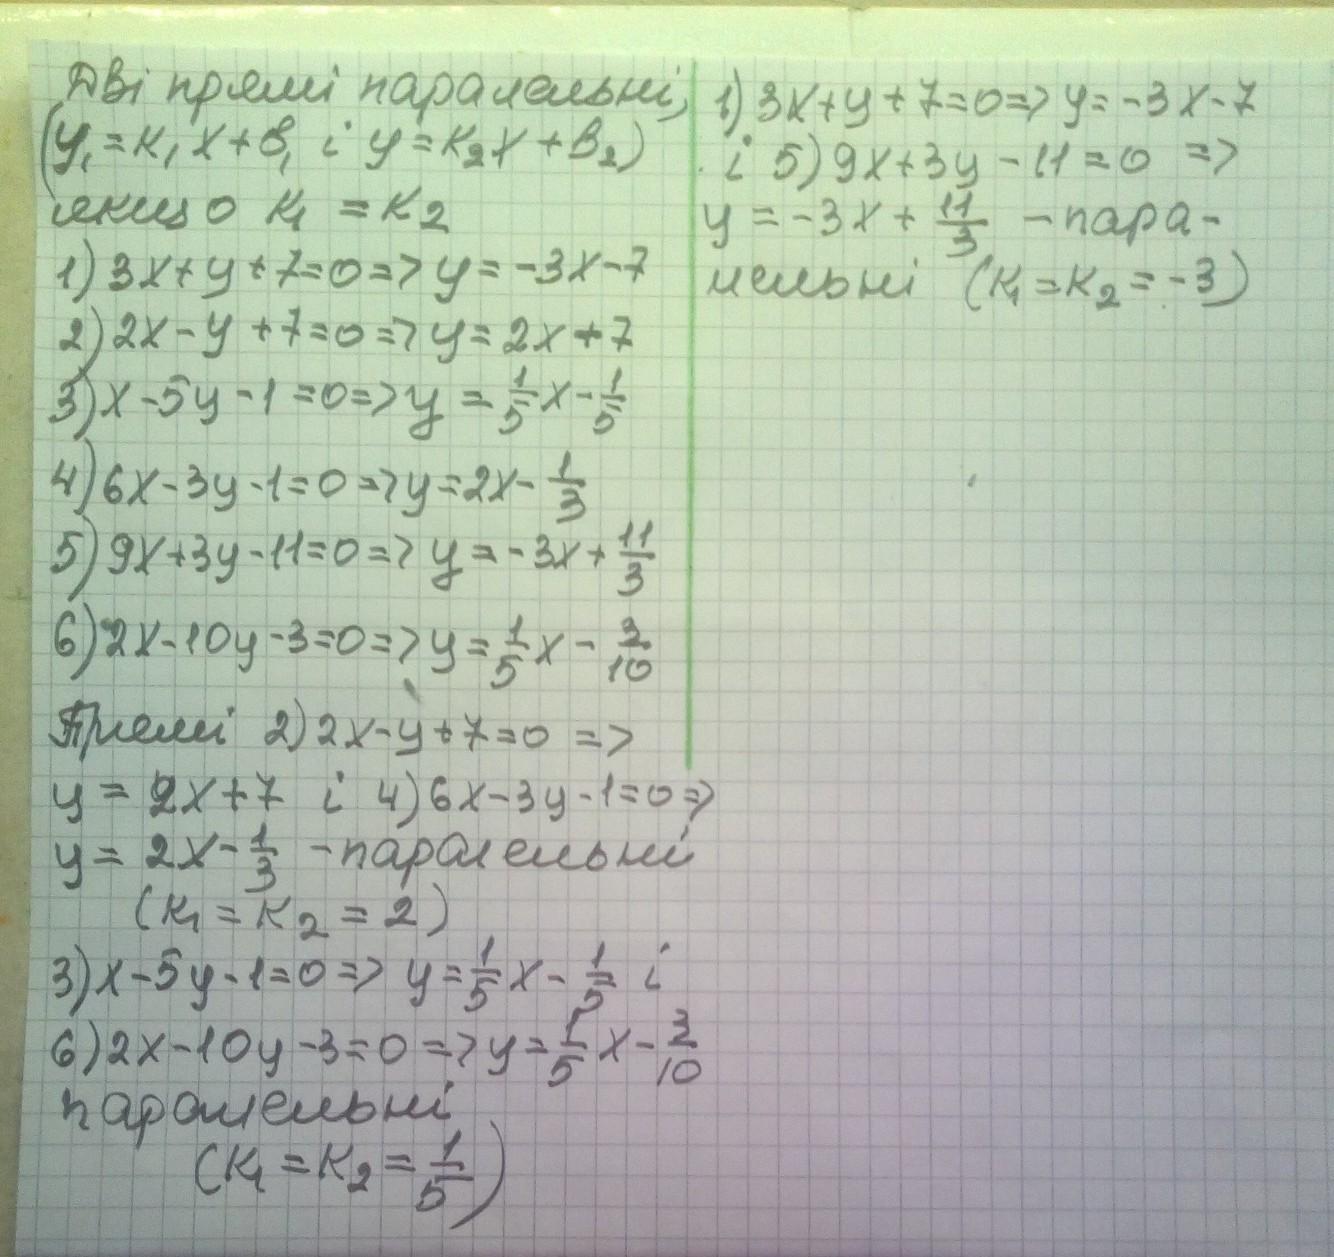 Дві прямі паралельні,
(y₁=k₁x+в₁ і y=k₂x+в₂)
якщо k₁=k₂
1) 3x+y+7=0=>y=-3x-7
2) 2x-y+7=0=>y=2x+7
3) x-5y-1=0=>y=1/5x-1/5
4) 6x-3y-1=0=>y=2x-1/3
5) 9x+3y-11=0=>y=-3x+11/3
6) 2x-10y-3=0=>y=1/5x-3/10
Прямі 2) 2x-y+7=0 =>
y=2x+7 і 4) 6x-3y-1=0=>
y=2x-1/3 -паралельні
(k₁=k₂=2)
3) x-5y-1=0=> y=1/5x-1/5 і
6) 2x-10y-3=0=>y=1/5x-3/10
паралельні
(k₁=k₂=1/5)
1) 3x+y+7=0=>y=-3x-7
і 5) 9x+3y-11=0 =>
y=-3x+11/3 -пара-
лельні (k₁=k₂=-3)